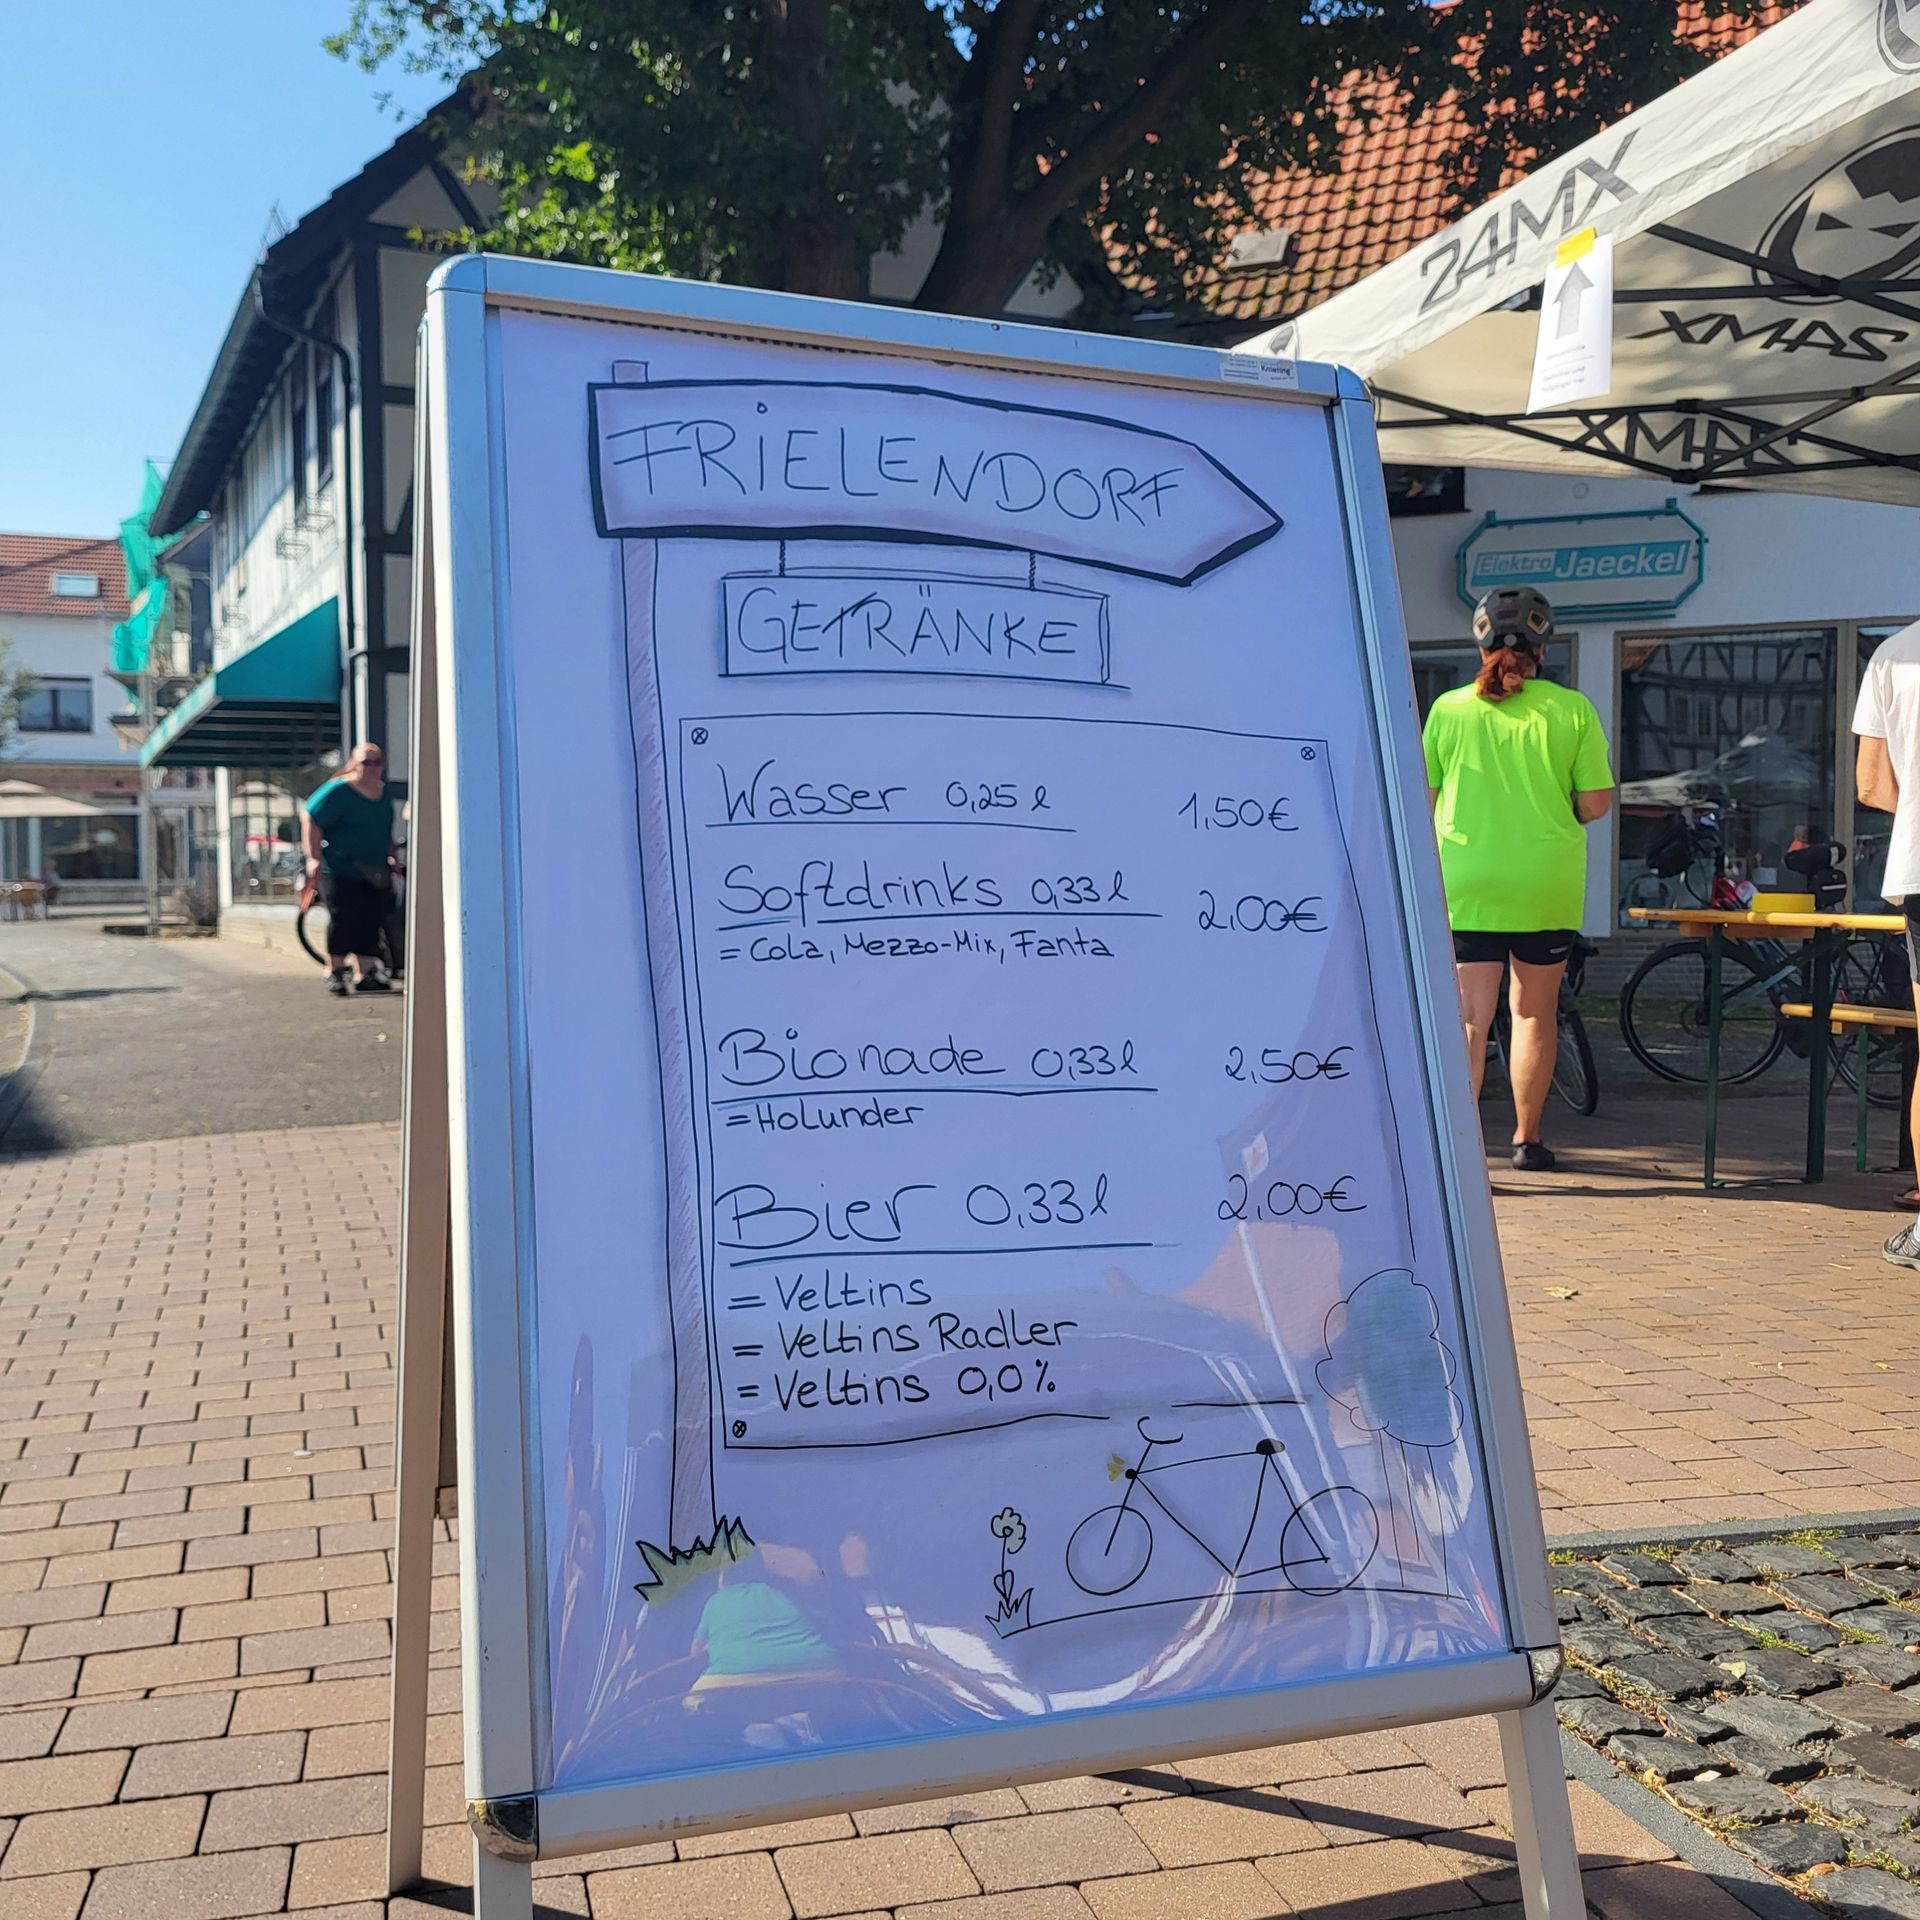 24MX
XMAS
XMAS
Elektro Jaeckel
FRIELENDORF
GETRÄNKE
Wasser 0,25 l 1,50€
Softdrinks 0,33 l 2,00€
= Cola, Mezzo-Mix, Fanta
Bionade 0,33 l 2,50€
= Holunder
Bier 0,33 l 2,00€
= Veltins
= Veltins Radler
= Veltins 0,0%